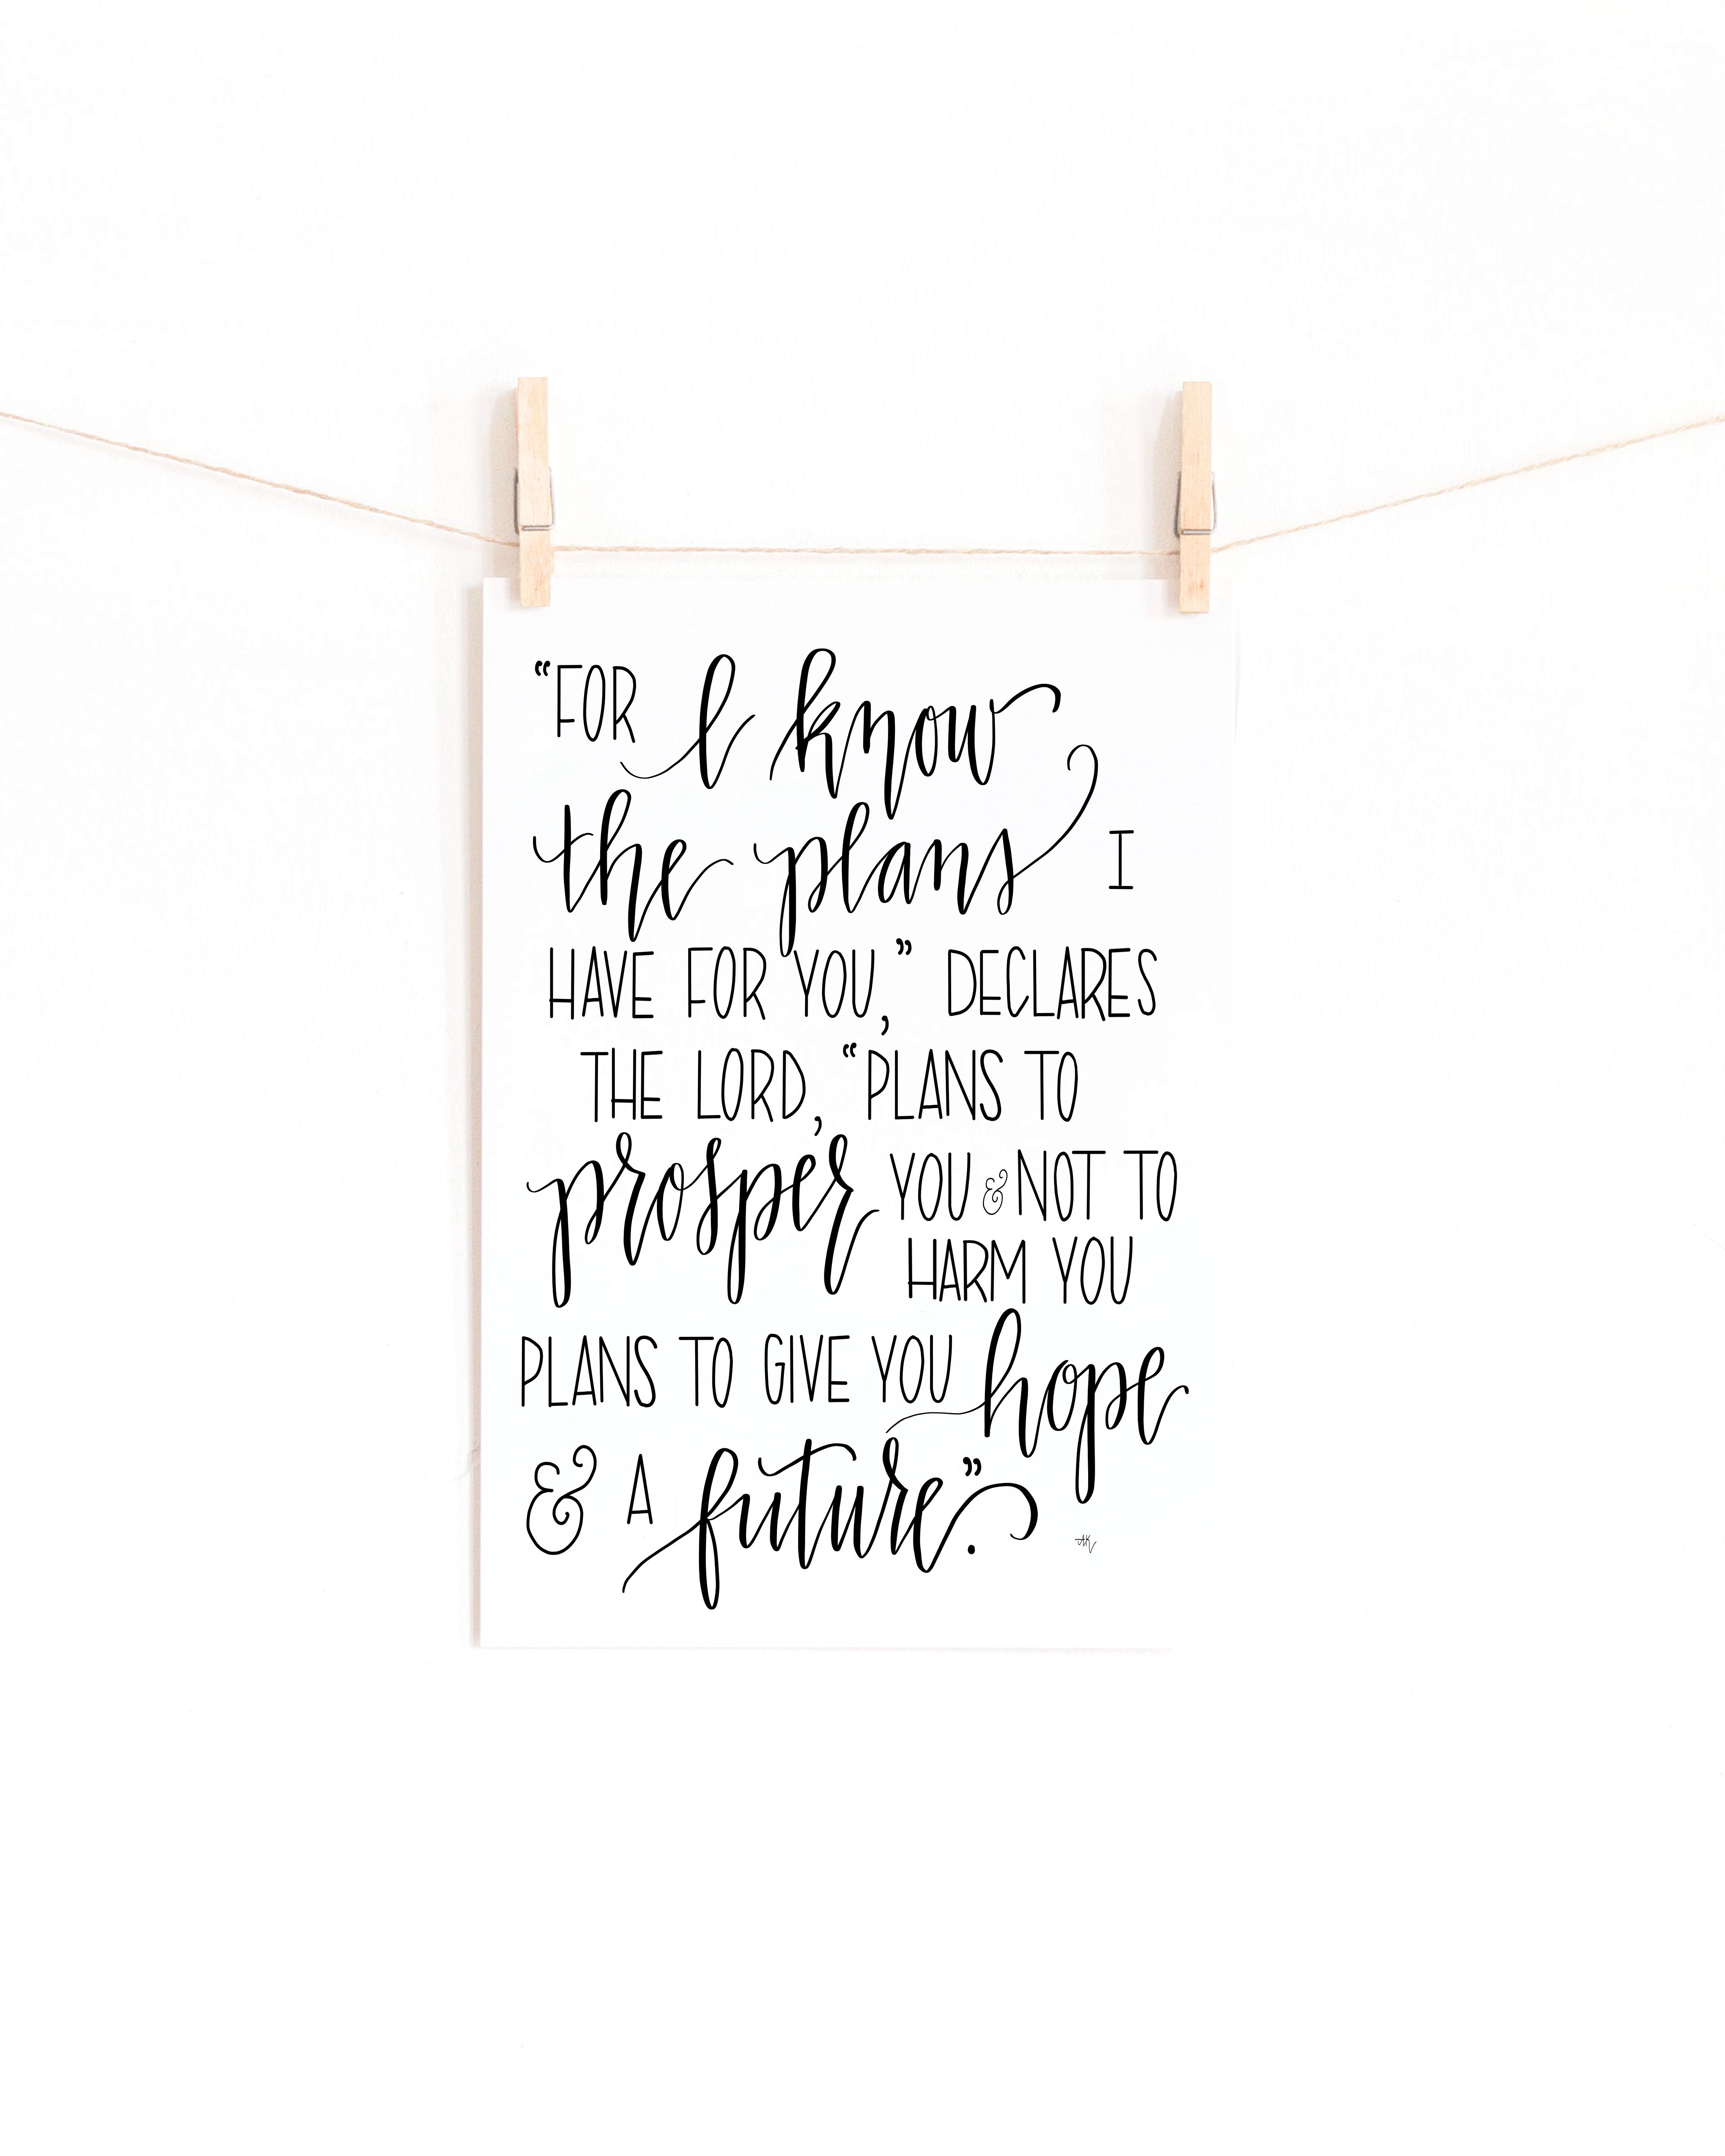 “FOR I know
the plans I
HAVE FOR YOU,” DECLARES
THE LORD, “PLANS TO
prosper YOU & NOT TO
HARM YOU
PLANS TO GIVE YOU hope
& A future.”
AK